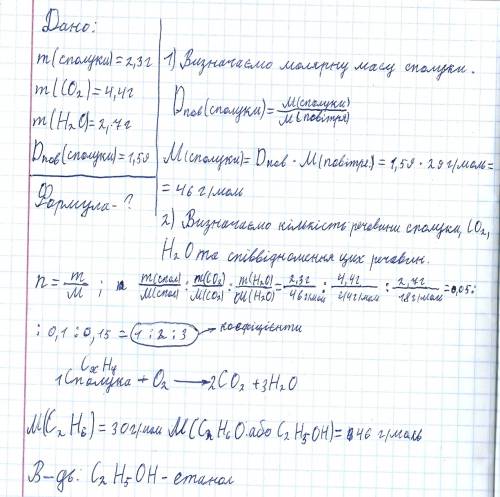 Дано:
m(сполуки)=2,3г
m(CO₂)=4,4г
m(H₂O)=2,7г
Dпов(сполуки)=1,59
Формула-?
1) Визначаємо молярну масу сполуки.
Dпов(сполуки)=M(сполуки)/M(повітря)
M(сполуки)=Dпов · M(повітря)=1,59 · 29 г/моль=
=46 г/моль
2) Визначаємо кількість речовини сполуки, CO₂,
H₂O та співвідношення цих речовин.
n=m/M ; m(спол)/M(спол) : m(CO₂)/M(CO₂) : m(H₂O)/M(H₂O) = 2,3г/46г/мол : 4,4г/44г/мол : 2,7г/18г/мол = 0,05:
: 0,1 : 0,15 = 1 : 2 : 3 коефіцієнти
CxHy
1Сполука + O₂ → 2CO₂ + 3H₂O
M(C₂H₆)=30г/моль M(C₂H₆O або C₂H₅OH)=46 г/моль
В-дь: C₂H₅OH - етанол